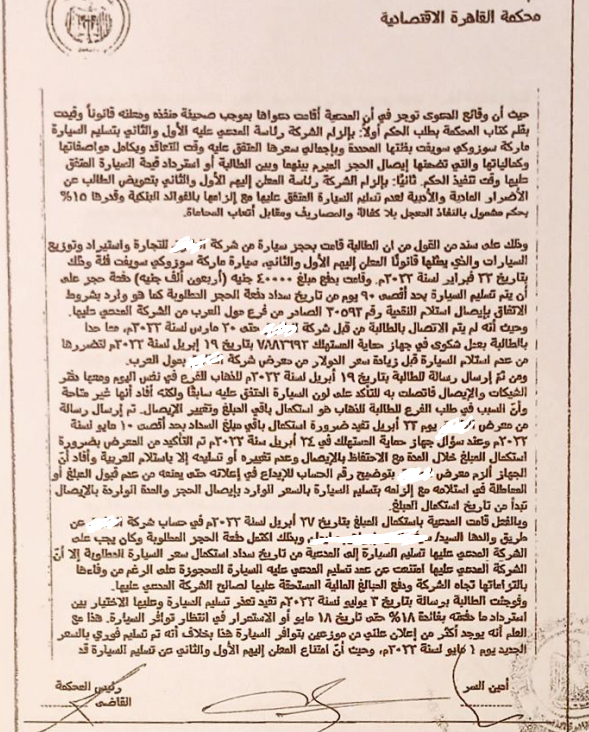 محكمة القاهرة الاقتصادية
حيث أن وقائع الدعوى توجز في أن المدعية أقامت دعواها بموجب صحيفة منفذه ومعلنه قانوناً وقيدت
بقلم كتاب المحكمة بطلب الحكم أولاً: بإلزام الشركة رئاسة المدعي عليه الأول والثاني بتسليم السيارة
ماركة سوزوكي سويفت بفئتها المحددة وبإجمالي سعرها المتفق عليه وقت التعاقد وبكامل مواصفاتها
وكمالياتها والتي تضمنها إيصال الحجز المبرم بينهما وبين الطالبة أو استرداد قيمة السيارة المتفق
عليها وقت تنفيذ الحكم. ثانيًا: بإلزام الشركة رئاسة المعلن إليهم الأول والثاني بتعويض الطالب عن
الأضرار المادية والأدبية لعدم تسليم السيارة المتفق عليها مع إلزامها بالفوائد البنكية وقدرها ١٥%
بحكم مشمول بالنفاذ المعجل بلا كفالة والمصاريف ومقابل أتعاب المحاماة.
وذلك على سند من القول من ان الطالبة قامت بحجز سيارة من شركة للتجارة واستيراد وتوزيع
السيارات والذي يمثلها قانونًا المعلن إليهم الأول والثاني، سيارة ماركة سوزوكي سويفت فئة وذلك
بتاريخ ٢٣ فبراير لسنة ٢٠٢٢م. وقامت بدفع مبلغ ٤٠٠٠٠ جنيه (أربعون ألف جنيه) دفعة حجز على
أن يتم تسليم السيارة بحد أقصى ٩٠ يوم من تاريخ سداد دفعة الحجز المطلوبة كما هو وارد بشروط
الاتفاق بإيصال استلام النقدية رقم ٣٠٥٩٢ الصادر من فرع حول العرب من الشركة المدعي عليها.
وحيث أنه لم يتم الاتصال بالطالبة من قبل شركة حتى ٣٠ مارس لسنة ٢٠٢٢م، مما حدا
بالطالبة بعمل شكوى في جهاز حماية المستهلك ٧٨٨٢٦٩٢ بتاريخ ١٩ إبريل لسنة ٢٠٢٢م لتضررها
من عدم استلام السيارة قبل زيادة سعر الدولار من معرض شركة بمول العرب.
ومن ثم إرسال رسالة للطالبة بتاريخ ١٩ أبريل لسنة ٢٠٢٢م للذهاب للفرع في نفس اليوم ومعها دفتر
الشيكات والإيصال فاتصلت به للتأكد على لون السيارة المتفق عليه سابقًا ولكنه أفاد أنها غير متاحة
وأن السبب في طلب الفرع للطالبة للذهاب هو استكمال باقي المبلغ وتغيير الإيصال. تم إرسال رسالة
من معرض يوم ٢٣ أبريل تفيد ضرورة استكمال باقي مبلغ السداد بحد أقصى ١٠ مايو لسنة
٢٠٢٢م وعند سؤال جهاز حماية المستهلك في ٢٤ أبريل سنة ٢٠٢٢م تم التأكيد من المعرض بضرورة
استكمال المبلغ خلال المدة مع الاحتفاظ بالإيصال وعدم تغييره أو تسليمه إلا باستلام العربية وأفاد أنّ
الجهاز ألزم معرض بتوضيح رقم الحساب للإيداع في إعلاناته حتى يمنعه من عدم قبول المبلغ أو
المماطلة في استلامه مع إلزامه بتسليم السيارة بالسعر الوارد بإيصال الحجز والمدة الواردة بالإيصال
تبدأ من تاريخ استكمال المبلغ.
وبالفعل قامت المدعية باستكمال المبلغ بتاريخ ٢٧ أبريل لسنة ٢٠٢٢م في حساب شركة عن
طريق والدها السيد/ وبذلك اكتمل دفعة الحجز المطلوبة وكان يجب على
الشركة المدعي عليها تسليم السيارة إلى المدعية من تاريخ سداد استكمال سعر السيارة المطلوبة إلا أنّ
الشركة المدعي عليها امتنعت عن عمد تسليم المدعى عليه السيارة المحجوزة على الرغم من وفاءها
بالتزاماتها تجاه الشركة ودفع المبالغ المالية المستحقة عليها لصالح الشركة المدعي عليها.
وفوجئت الطالبة برسالة بتاريخ ٣ يونيو لسنة ٢٠٢٢م تفيد تعذر تسليم السيارة وعليها الاختيار بين
استرداد ما دفعته بفائدة ١٨% حتى تاريخ ١٨ مايو أو الاستمرار في انتظار توافر السيارة. هذا مع
العلم أنه يوجد أكثر من إعلان علني من موزعين بتوافر السيارة هذا بخلاف أنه تم تسليم فوري بالسعر
الجديد يوم ١ مايو لسنة ٢٠٢٢م، وحيث أنّ امتناع المعلن إليهم الأول والثاني عن تسليم السيارة قد
أمين السر
رئيس المحكمة
القاضي